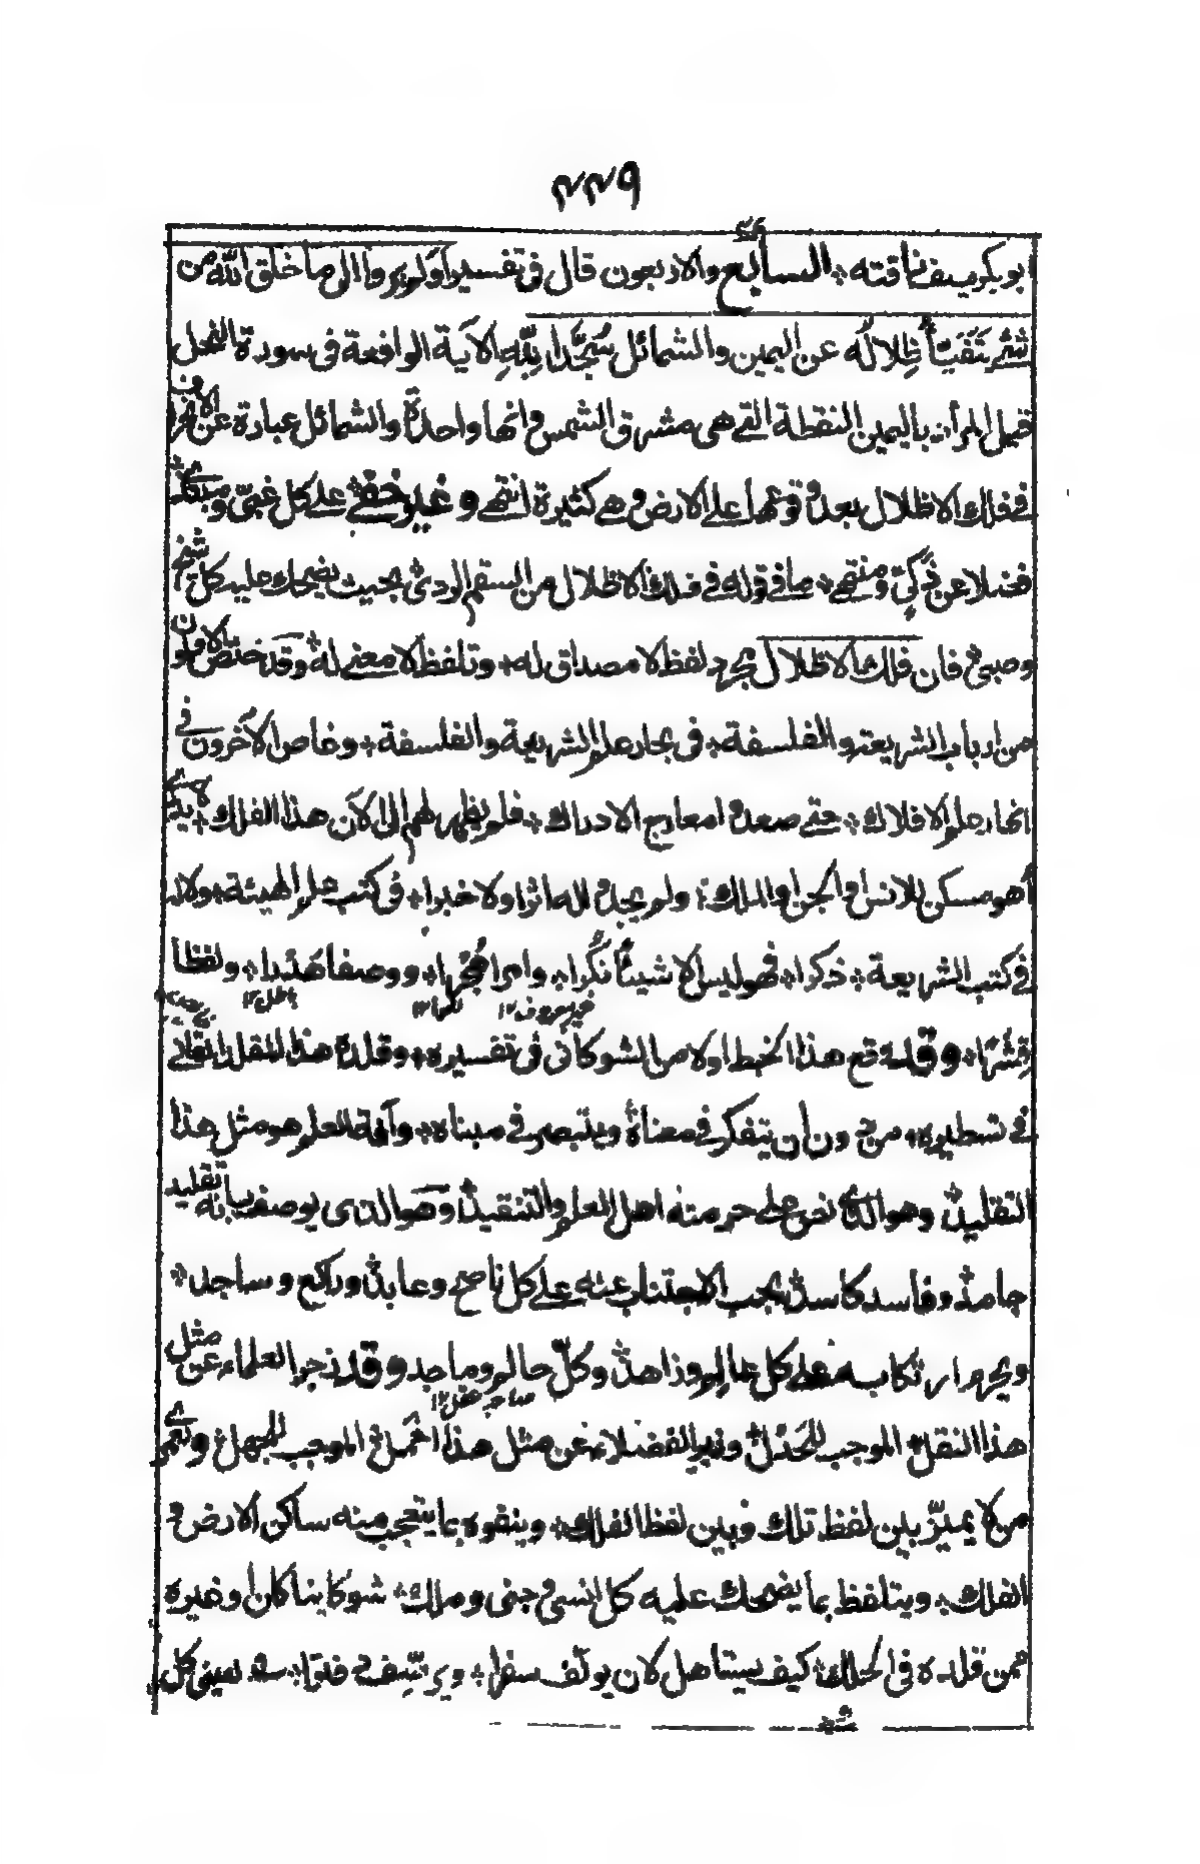 ٢٢٩
بو بكر سيف ناقته ۞ السابع والاربعون قال في تفسير اولم يروا الى ما خلق الله من
شئ يتفيأ ظلاله عن اليمين والشمائل سجدا لله الآية الواقعة في سورة النحل
قيل المراد باليمين النقطة التي هي مشرق الشمس وانها واحدة والشمائل عبارة عن الانحراف
في فلك الاظلال بعد وقوعها على الارض وهي كثيرة انتهى وغير خفي على كل غبي ومبتدئ
فضلا عن ذكي ومنتهي ۞ ما في قوله في فلك الاظلال من السقم الردئ بحيث يضحك عليه كل شيخ
وصبي فان فلك الاظلال مجرد لفظ لا مصداق له ۞ وتلفظ لا معنى له وقد خاض الاولون
من ارباب الشريعة والفلسفة ۞ في بحار علم الشريعة والفلسفة ۞ وخاص الآخرون في
انهار علم الافلاك ۞ حتى صعدوا معارج الادراك ۞ فلم يظهر لهم الى الآن هذا الفلك ۞
أهو مسكن للانس او الجن او الملك ۞ ولم يجدوا له اثرا ولا خبرا ۞ في كتب علم الهيئة ۞ ولا
في كتب الشريعة ۞ ذكرا ۞ فهو ليس الا شيئا نكرا ۞ وامرا هجرا ۞ ووصفا هذرا ۞ ولفظا
غير معروف ١٢
باطل ١٢
قشرا ۞ وقد وقع هذا الخبط اولا من الشوكاني في تفسيره ۞ وقلده هذا المقلد القاني
في تسطيره ۞ من دون ان يتفكر في معناه ويتبصر في مبناه ۞ وآفة العلم هو مثل هذا
التقليد وهو الذي نص على حرمته اهل العلم والتنقيد وهو الذي يوصف بانه تقليد
جامد وفاسد كاسد يجب الاجتناب عنه على كل ناصح وعابد وراكع وساجد ۞
ويحرم ارتكابه على كل عالم وزاهد وكل حالم وماجد وقد زجر العلماء عن مثل
صاحب عقل ١٢
هذا النقل الموجب للخذل وزبر الفضلاء عن مثل هذا الحمل الموجب للجهل ولعمري
من لا يميز بين لفظ تلك وبين لفظ الفلك ۞ ويتفوه بما يتعجب منه ساكن الارض و
الفلك ۞ ويتلفظ بما يضحك عليه كل انسي وجني وملك ۞ شوكانيا كان او غيره
ممن قلده في الحلك ۞ كيف يستاهل لان يؤلف سفرا ۞